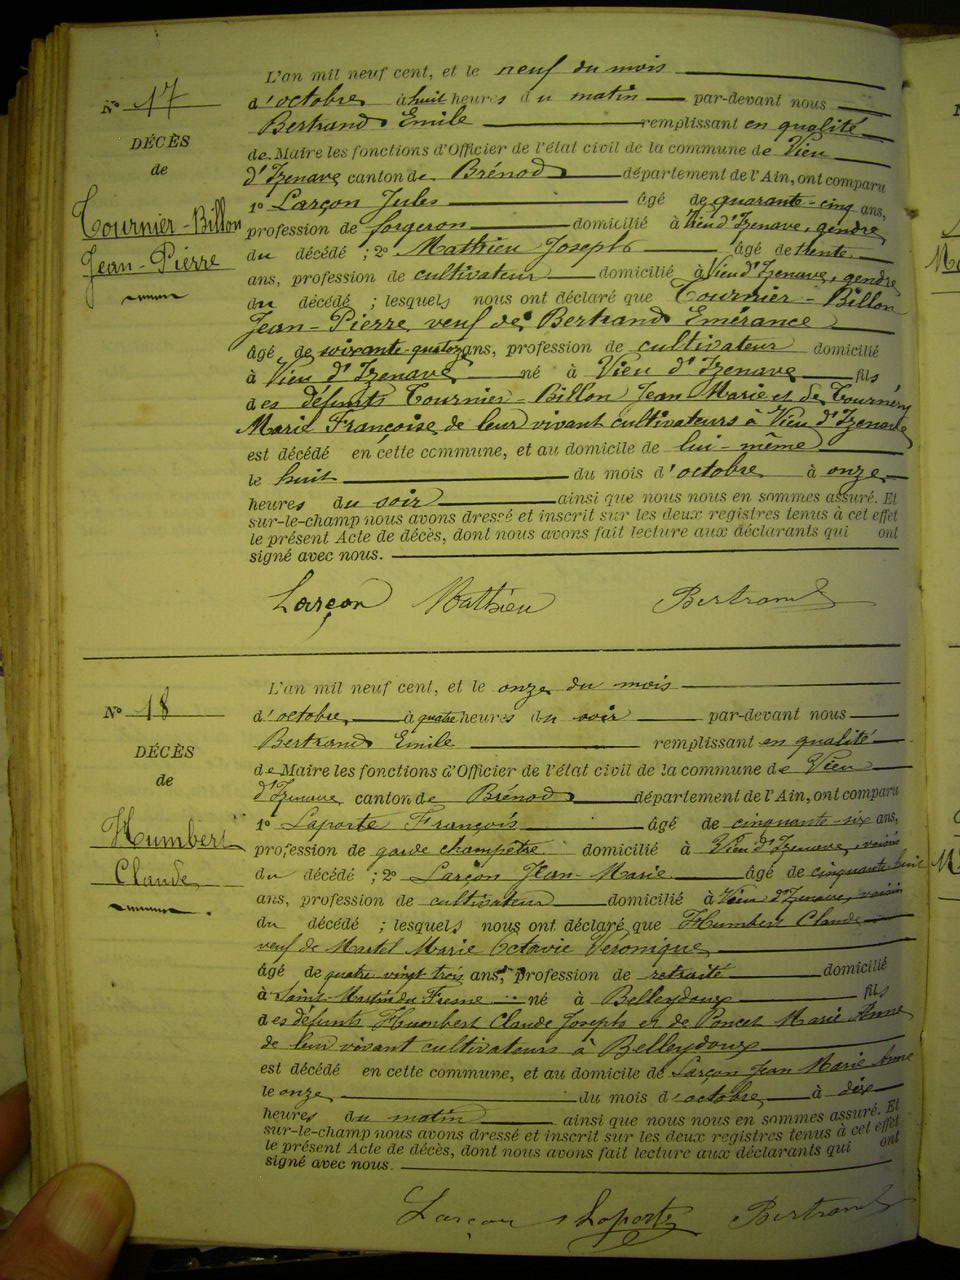 N° 17
DÉCÈS
de
Tournier-Billon
Jean-Pierre
L'an mil neuf cent, et le neuf du mois
d'octobre à huit heures du matin par-devant nous
Bertrand Emile remplissant en qualité
de Maire les fonctions d'Officier de l'état civil de la commune de Vieu
d'Izenave canton de Brénod département de l'Ain, ont comparu
1° Larçon Jules âgé de quarante-cinq ans,
profession de forgeron domicilié à Vieu d'Izenave, gendre
du décédé ; 2° Mathieu Joseph âgé de trente
ans, profession de cultivateur domicilié à Vieu d'Izenave, gendre
du décédé ; lesquels nous ont déclaré que Tournier-Billon
Jean-Pierre veuf de Bertrand Emérance
âgé de soixante-quatorze ans, profession de cultivateur domicilié
à Vieu d'Izenave né à Vieu d'Izenave fils
des défunts Tournier-Billon Jean Marie et de Tournéry
Marie Françoise de leur vivant cultivateurs à Vieu d'Izenave
est décédé en cette commune, et au domicile de lui-même
le huit du mois d'octobre à onze
heures du soir ainsi que nous nous en sommes assuré. Et
sur-le-champ nous avons dressé et inscrit sur les deux registres tenus à cet effet
le présent Acte de décès, dont nous avons fait lecture aux déclarants qui ont
signé avec nous.
Larçon Mathieu Bertrand
N° 18
DÉCÈS
de
Humbert
Claude
L'an mil neuf cent, et le onze du mois
d'octobre, à quatre heures du soir par-devant nous
Bertrand Emile remplissant en qualité
de Maire les fonctions d'Officier de l'état civil de la commune de Vieu
d'Izenave canton de Brénod département de l'Ain, ont comparu
1° Laporte François âgé de cinquante-six ans,
profession de garde champêtre domicilié à Vieu d'Izenave, voisin
du décédé ; 2° Larçon Jean-Marie âgé de cinquante huit
ans, profession de cultivateur domicilié à Vieu d'Izenave, voisin
du décédé ; lesquels nous ont déclaré que Humbert Claude
veuf de Martel Marie Octavie Véronique
âgé de quatre vingt trois ans, profession de retraité domicilié
à Saint-Martin du Fresne né à Belleydoux fils
des défunts Humbert Claude Joseph et de Poncet Marie Anne
de leur vivant cultivateurs à Belleydoux
est décédé en cette commune, et au domicile de Larçon Jean Marie Anne
le onze du mois d'octobre, à dix
heures du matin ainsi que nous nous en sommes assuré. Et
sur-le-champ nous avons dressé et inscrit sur les deux registres tenus à cet effet
le présent Acte de décès, dont nous avons fait lecture aux déclarants qui ont
signé avec nous.
Larçon Laporte Bertrand